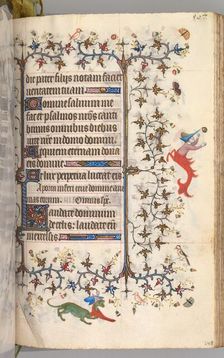 die pater filijs notam facit
veritatem tuam
Domine saluum me
fac et psalmos nostros canta
bimus omnibus diebus
uite nostre in domo domini.
Requiem eternam domine
et lux perpetua luceat eis
A porta inferi erue domine ani
mas eorum.
Laudate dominum
de celis: laudate eum
in excelsis